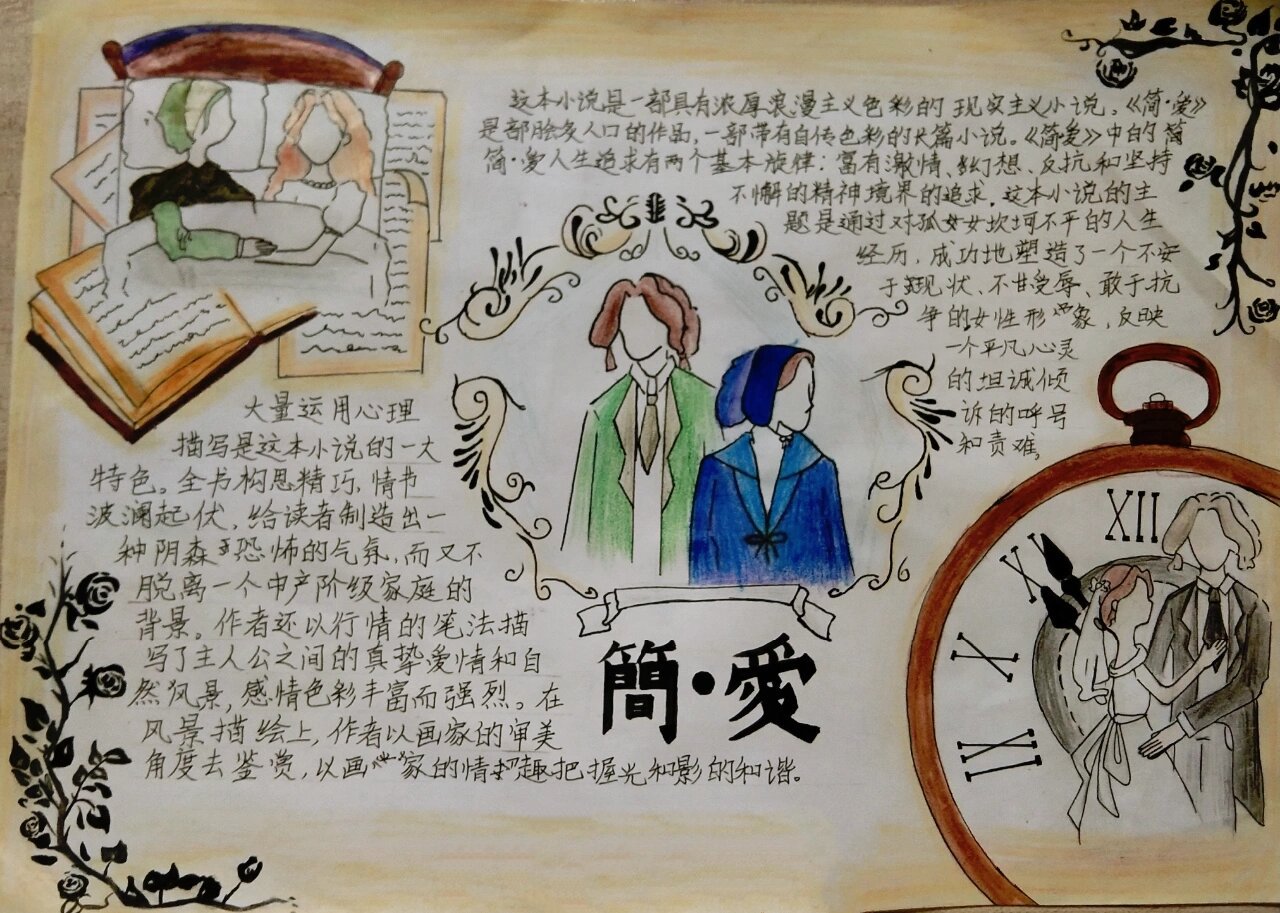 这本小说是一部具有浓厚浪漫主义色彩的现实主义小说。《简·爱》
是部脍炙人口的作品,一部带有自传色彩的长篇小说。《简爱》中的简
简·爱人生追求有两个基本旋律:富有激情、幻想、反抗和坚持
不懈的精神境界的追求。这本小说的主
题是通过对孤女坎坷不平的人生
经历,成功地塑造了一个不安
于现状、不甘受辱、敢于抗
争的女性形象,反映
一个平凡心灵
的坦诚倾
诉的呼号
和责难。
大量运用心理
描写是这本小说的一大
特色。全书构思精巧,情节
波澜起伏,给读者制造出一
种阴森恐怖的气氛,而又不
脱离一个中产阶级家庭的
背景。作者还以行情的笔法描
写了主人公之间的真挚爱情和自
然风景,感情色彩丰富而强烈。在
风景描绘上,作者以画家的审美
角度去鉴赏,以画家的情趣把握光和影的和谐。
簡·愛
XII
XI
X
IX